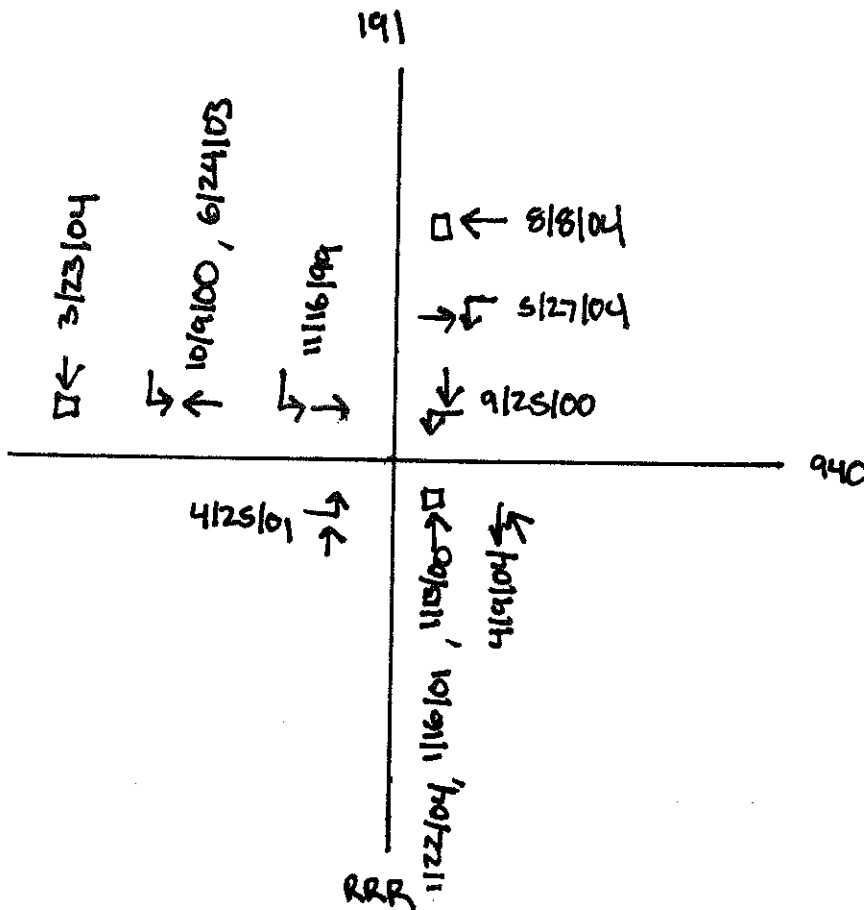 191
3/23/04
10/9/00, 6/24/03
11/16/99
8/8/04
5/27/04
9/25/00
940
4/25/01
1/22/04, 1/16/01, 1/13/00
4/9/04
RRR